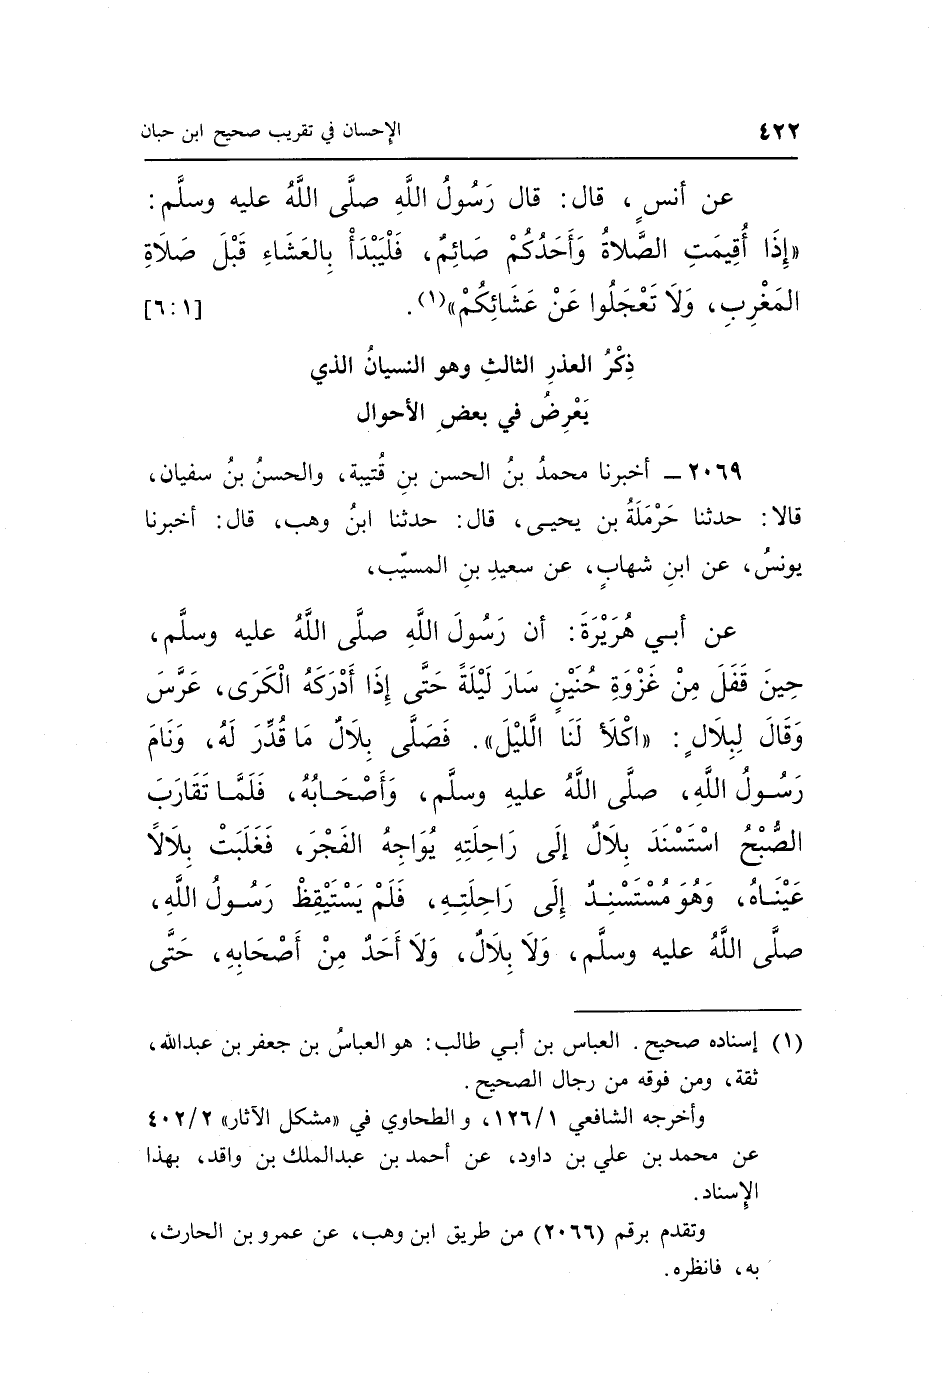 ٤٢٢ الإحسان في تقريب صحيح ابن حبان
عن أنسٍ، قال: قال رَسُولُ اللَّهِ صلَّى اللَّهُ عليه وسلَّم:
«إِذَا أُقِيمَتِ الصَّلاةُ وَأَحَدُكُمْ صَائِمٌ، فَلْيَبْدَأْ بِالعَشَاءِ قَبْلَ صَلَاةِ
المَغْرِبِ، وَلَا تَعْجَلُوا عَنْ عَشَائِكُمْ»(١). [٦:١]
ذِكْرُ العذرِ الثالثِ وهو النسيانُ الذي
يَعْرِضُ في بعضِ الأحوال
٢٠٦٩ ـ أخبرنا محمدُ بنُ الحسن بنِ قُتيبة، والحسنُ بنُ سفيان،
قالا: حدثنا حَرْمَلَةُ بن يحيى، قال: حدثنا ابنُ وهب، قال: أخبرنا
يونسُ، عن ابنِ شهابٍ، عن سعيدِ بنِ المسيّب،
عن أبي هُرَيْرَةَ: أن رَسُولَ اللَّهِ صلَّى اللَّهُ عليه وسلَّم،
حِينَ قَفَلَ مِنْ غَزْوَةِ حُنَيْنٍ سَارَ لَيْلَةً حَتَّى إِذَا أَدْرَكَهُ الْكَرَى، عَرَّسَ
وَقَالَ لِبِلَالٍ: «اكْلَأْ لَنَا الَّليْلَ». فَصَلَّى بِلَالٌ مَا قُدِّرَ لَهُ، وَنَامَ
رَسُولُ اللَّهِ، صلَّى اللَّهُ عليهِ وسلَّم، وَأَصْحَابُهُ، فَلَمَّا تَقَارَبَ
الصُّبْحُ اسْتَسْنَدَ بِلَالٌ إِلَى رَاحِلَتِهِ يُوَاجِهُ الفَجْرَ، فَغَلَبَتْ بِلَالًا
عَيْنَاهُ، وَهُوَ مُسْتَسْنِدٌ إِلَى رَاحِلَتِهِ، فَلَمْ يَسْتَيْقِظْ رَسُولُ اللَّهِ،
صلَّى اللَّهُ عليه وسلَّم، وَلَا بِلَالٌ، وَلَا أَحَدٌ مِنْ أَصْحَابِهِ، حَتَّى
(١) إسناده صحيح. العباس بن أبي طالب: هو العباسُ بن جعفر بن عبدالله،
ثقة، ومن فوقه من رجال الصحيح.
وأخرجه الشافعي ١٢٦/١، و الطحاوي في «مشكل الآثار» ٤٠٢/٢
عن محمد بن علي بن داود، عن أحمد بن عبدالملك بن واقد، بهذا
الإِسناد.
وتقدم برقم (٢٠٦٦) من طريق ابن وهب، عن عمرو بن الحارث،
به، فانظره.